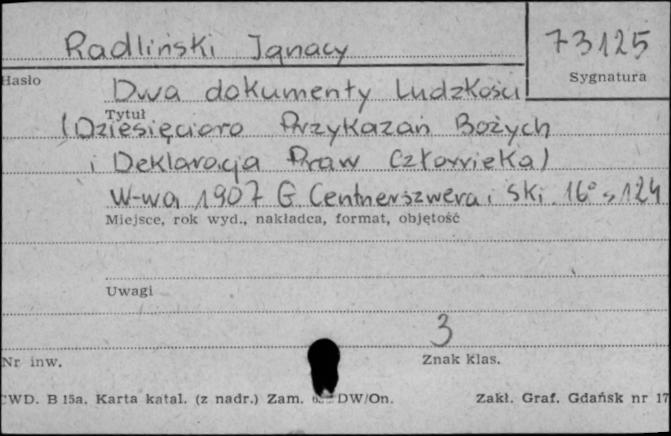 Radliński Ignacy
73125
Hasło
Sygnatura
Dwa dokumenty Ludzkości
Tytuł
(Dziesięcioro Przykazań Bożych
i Deklaracja Praw Człowieka)
W-wa 1907 G. Centnerszwera i Ski. 16° s. 124
Miejsce, rok wyd., nakładca, format, objętość
Uwagi
3
Nr inw.
Znak klas.
CWD. B 15a. Karta katal. (z nadr.) Zam. DW/On.
Zakł. Graf. Gdańsk nr 17